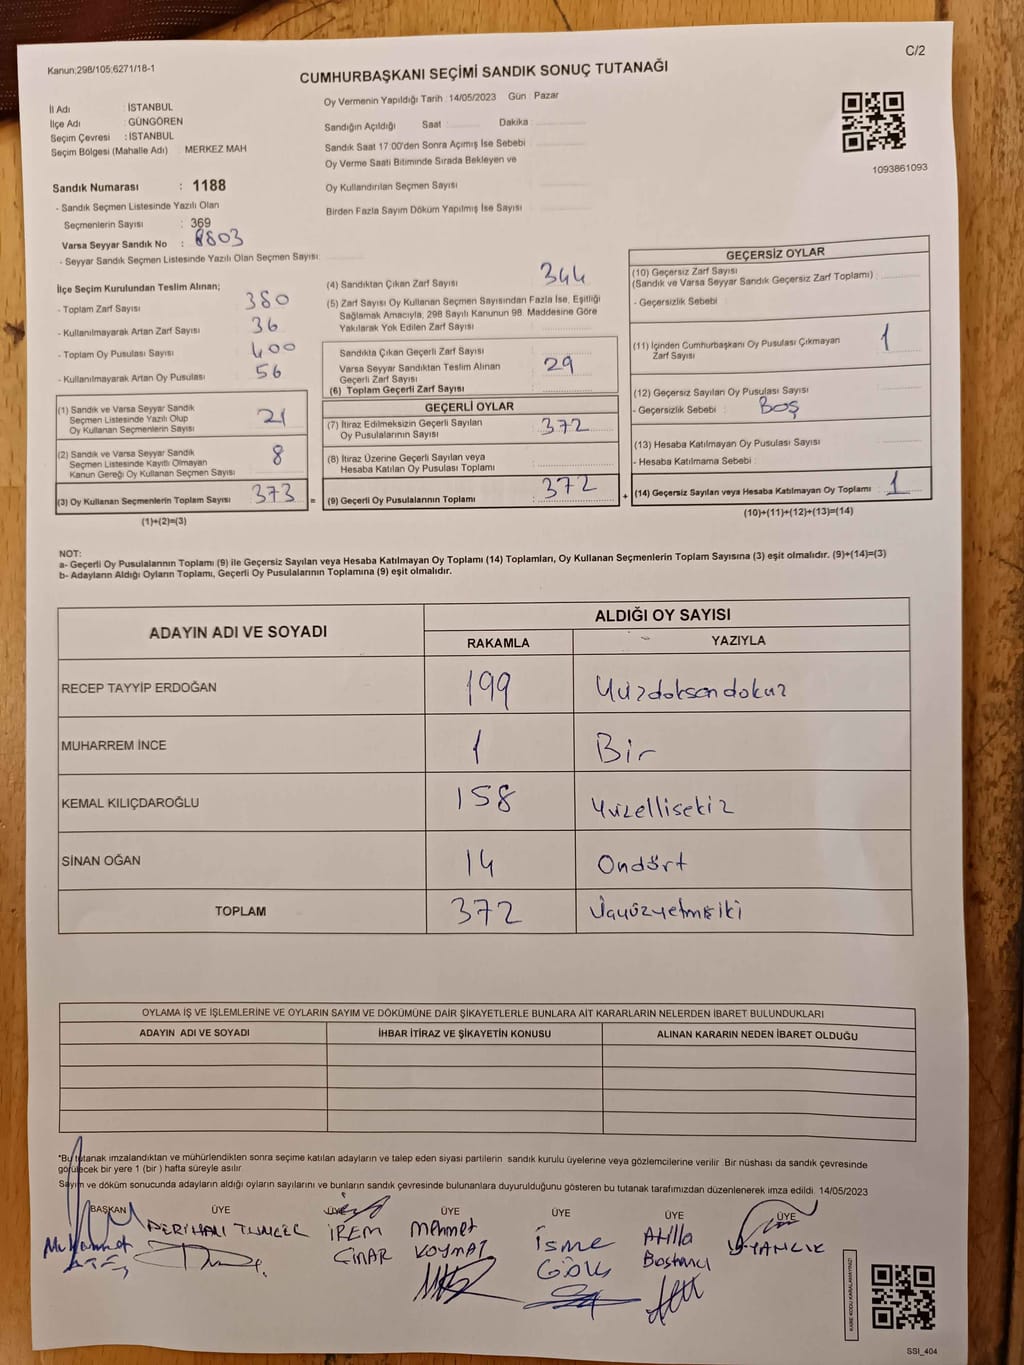 Kanun;298/105;6271/18-1
C/2
CUMHURBAŞKANI SEÇİMİ SANDIK SONUÇ TUTANAĞI
İl Adı : İSTANBUL
İlçe Adı : GÜNGÖREN
Seçim Çevresi : İSTANBUL
Seçim Bölgesi (Mahalle Adı) MERKEZ MAH
Oy Vermenin Yapıldığı Tarih :14/05/2023 Gün : Pazar
Sandığın Açıldığı Saat : Dakika :
Sandık Saat 17:00'den Sonra Açımış İse Sebebi :
Oy Verme Saati Bitiminde Sırada Bekleyen ve
Oy Kullandırılan Seçmen Sayısı :
Birden Fazla Sayım Döküm Yapılmış İse Sayısı :
1093861093
Sandık Numarası : 1188
- Sandık Seçmen Listesinde Yazılı Olan
Seçmenlerin Sayısı : 369
Varsa Seyyar Sandık No : 8503
- Seyyar Sandık Seçmen Listesinde Yazılı Olan Seçmen Sayısı:
İlçe Seçim Kurulundan Teslim Alınan;
- Toplam Zarf Sayısı : 380
- Kullanılmayarak Artan Zarf Sayısı : 36
- Toplam Oy Pusulası Sayısı : 400
- Kullanılmayarak Artan Oy Pusulası : 56
(1) Sandık ve Varsa Seyyar Sandık
Seçmen Listesinde Yazılı Olup
Oy Kullanan Seçmenlerin Sayısı : 21
(2) Sandık ve Varsa Seyyar Sandık
Seçmen Listesinde Kayıtlı Olmayan
Kanun Gereği Oy Kullanan Seçmen Sayısı : 8
(3) Oy Kullanan Seçmenlerin Toplam Sayısı : 373 =
(1)+(2)=(3)
(4) Sandıktan Çıkan Zarf Sayısı : 344
(5) Zarf Sayısı Oy Kullanan Seçmen Sayısından Fazla İse, Eşitliği
Sağlamak Amacıyla, 298 Sayılı Kanunun 98. Maddesine Göre
Yakılarak Yok Edilen Zarf Sayısı :
Sandıkta Çıkan Geçerli Zarf Sayısı :
Varsa Seyyar Sandıktan Teslim Alınan
Geçerli Zarf Sayısı : 29
(6) Toplam Geçerli Zarf Sayısı :
GEÇERLİ OYLAR
(7) İtiraz Edilmeksizin Geçerli Sayılan
Oy Pusulalarının Sayısı : 372
(8) İtiraz Üzerine Geçerli Sayılan veya
Hesaba Katılan Oy Pusulası Toplamı :
(9) Geçerli Oy Pusulalarının Toplamı : 372 +
GEÇERSİZ OYLAR
(10) Geçersiz Zarf Sayısı
(Sandık ve Varsa Seyyar Sandık Geçersiz Zarf Toplamı) :
- Geçersizlik Sebebi :
(11) İçinden Cumhurbaşkanı Oy Pusulası Çıkmayan
Zarf Sayısı : 1
(12) Geçersiz Sayılan Oy Pusulası Sayısı :
- Geçersizlik Sebebi : Boş
(13) Hesaba Katılmayan Oy Pusulası Sayısı :
- Hesaba Katılmama Sebebi :
(14) Geçersiz Sayılan veya Hesaba Katılmayan Oy Toplamı : 1
(10)+(11)+(12)+(13)=(14)
NOT:
a- Geçerli Oy Pusulalarının Toplamı (9) ile Geçersiz Sayılan veya Hesaba Katılmayan Oy Toplamı (14) Toplamları, Oy Kullanan Seçmenlerin Toplam Sayısına (3) eşit olmalıdır. (9)+(14)=(3)
b- Adayların Aldığı Oyların Toplamı, Geçerli Oy Pusulalarının Toplamına (9) eşit olmalıdır.
ADAYIN ADI VE SOYADI
ALDIĞI OY SAYISI
RAKAMLA YAZIYLA
RECEP TAYYİP ERDOĞAN 199 Yüzdoksandokuz
MUHARREM İNCE 1 Bir
KEMAL KILIÇDAROĞLU 158 Yüzellisekiz
SİNAN OĞAN 14 Ondört
TOPLAM 372 Üçyüzyetmişiki
OYLAMA İŞ VE İŞLEMLERİNE VE OYLARIN SAYIM VE DÖKÜMÜNE DAİR ŞİKAYETLERLE BUNLARA AİT KARARLARIN NELERDEN İBARET BULUNDUKLARI
ADAYIN ADI VE SOYADI İHBAR İTİRAZ VE ŞİKAYETİN KONUSU ALINAN KARARIN NEDEN İBARET OLDUĞU
*Bu tutanak imzalandıktan ve mühürlendikten sonra seçime katılan adayların ve talep eden siyasi partilerin sandık kurulu üyelerine veya gözlemcilerine verilir. Bir nüshası da sandık çevresinde
görülecek bir yere 1 (bir ) hafta süreyle asılır.
Sayım ve döküm sonucunda adayların aldığı oyların sayılarını ve bunların sandık çevresinde bulunanlara duyurulduğunu gösteren bu tutanak tarafımızdan düzenlenerek imza edildi. 14/05/2023
BAŞKAN ÜYE ÜYE ÜYE ÜYE ÜYE ÜYE
Muhammet
PERİHAN TUNCEL
İREM
ÇINAR
Mehmet
KOYMAT
İsme
GÖK
Atilla
Bostancı
KARE KODU KARALAMAYINIZ!
SSI_404